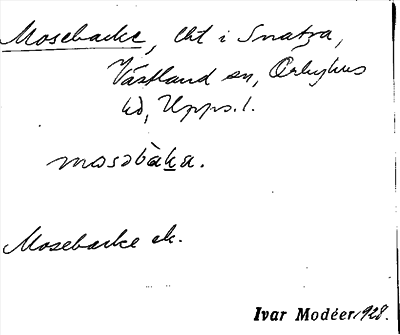 Mosebacke, lht i Snatra,
Västland sn, Örbyhus
hd, Upps. l.
mosəbàka.
Mosebacke ek.
Ivar Modéer 1928.